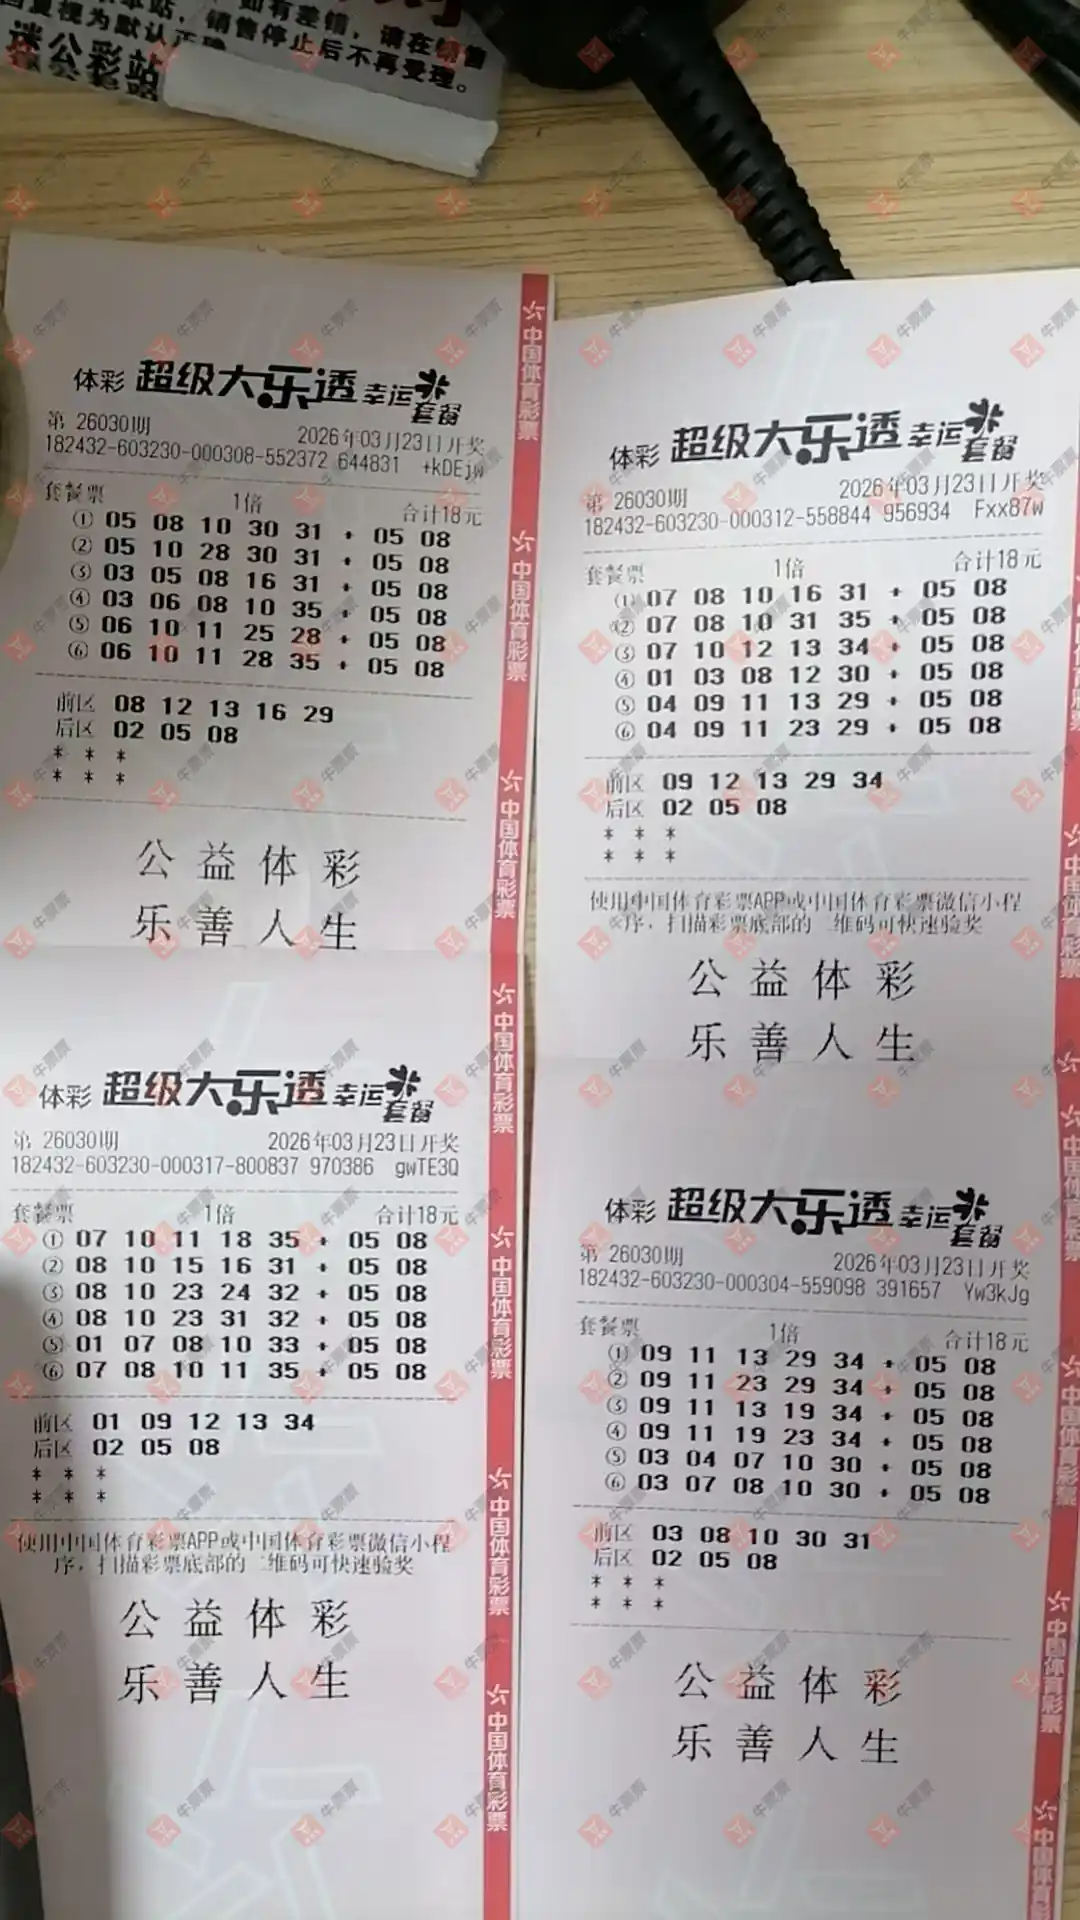 如有差错，请在销售
回复视为默认正确 销售停止后不再受理。
迷公彩站
体彩 超级大乐透 幸运套餐
第 26030期 2026年03月23日开奖
182432-603230-000308-552372 644831 +kDEjw
套餐票 1倍 合计18元
① 05 08 10 30 31 + 05 08
② 05 10 28 30 31 + 05 08
③ 03 05 08 16 31 + 05 08
④ 03 06 08 10 35 + 05 08
⑤ 06 10 11 25 28 + 05 08
⑥ 06 10 11 28 35 + 05 08
前区 08 12 13 16 29
后区 02 05 08
* * *
* * *
公益体彩
乐善人生
体彩 超级大乐透 幸运套餐
第 26030期 2026年03月23日开奖
182432-603230-000312-558844 956934 Fxx87w
套餐票 1倍 合计18元
① 07 08 10 16 31 + 05 08
② 07 08 10 31 35 + 05 08
③ 07 10 12 13 34 + 05 08
④ 01 03 08 12 30 + 05 08
⑤ 04 09 11 13 29 + 05 08
⑥ 04 09 11 23 29 + 05 08
前区 09 12 13 29 34
后区 02 05 08
* * *
* * *
使用中国体育彩票APP或中国体育彩票微信小程
序，扫描彩票底部的二维码可快速验奖
公益体彩
乐善人生
体彩 超级大乐透 幸运套餐
第 26030期 2026年03月23日开奖
182432-603230-000317-800837 970386 gwTE3Q
套餐票 1倍 合计18元
① 07 10 11 18 35 + 05 08
② 08 10 15 16 31 + 05 08
③ 08 10 23 24 32 + 05 08
④ 08 10 23 31 32 + 05 08
⑤ 01 07 08 10 33 + 05 08
⑥ 07 08 10 11 35 + 05 08
前区 01 09 12 13 34
后区 02 05 08
* * *
* * *
使用中国体育彩票APP或中国体育彩票微信小程
序，扫描彩票底部的二维码可快速验奖
公益体彩
乐善人生
体彩 超级大乐透 幸运套餐
第 26030期 2026年03月23日开奖
182432-603230-000304-559098 391657 Yw3kJg
套餐票 1倍 合计18元
① 09 11 13 29 34 + 05 08
② 09 11 23 29 34 + 05 08
③ 09 11 13 19 34 + 05 08
④ 09 11 19 23 34 + 05 08
⑤ 03 04 07 10 30 + 05 08
⑥ 03 07 08 10 30 + 05 08
前区 03 08 10 30 31
后区 02 05 08
* * *
* * *
公益体彩
乐善人生
中国体育彩票
中国体育彩票
中国体育彩票
中国体育彩票
中国体育彩票
中国体育彩票
中国体育彩票
中国体育彩票
中国体育彩票
牛票票